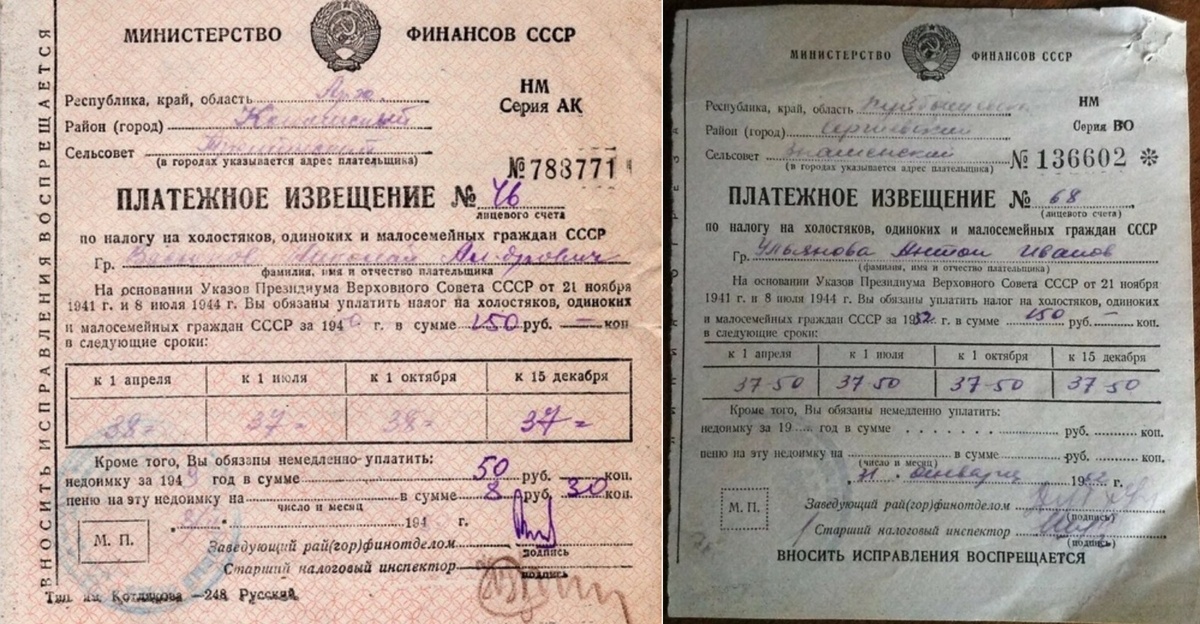 ВНОСИТЬ ИСПРАВЛЕНИЯ ВОСПРЕЩАЕТСЯ
МИНИСТЕРСТВО ФИНАНСОВ СССР
НМ
Серия АК
Республика, край, область Арх.
Район (город)
Сельсовет
(в городах указывается адрес плательщика)
№ 788771
ПЛАТЕЖНОЕ ИЗВЕЩЕНИЕ № 46
лицевого счета
по налогу на холостяков, одиноких и малосемейных граждан СССР
Гр. Николай
фамилия, имя и отчество плательщика
На основании Указов Президиума Верховного Совета СССР от 21 ноября
1941 г. и 8 июля 1944 г. Вы обязаны уплатить налог на холостяков, одиноких
и малосемейных граждан СССР за 194 г. в сумме 150 руб. — коп
в следующие сроки:
к 1 апреля к 1 июля к 1 октября к 15 декабря
38= 37= 38= 37=
Кроме того, Вы обязаны немедленно уплатить:
недоимку за 1949 год в сумме 50 руб. коп.
пеню на эту недоимку на в сумме 8 руб. 30 коп.
число и месяц
194 г.
М. П.
Заведующий рай(гор)финотделом
подпись
Старший налоговый инспектор
подпись
Тип. им. Котлякова —248 Русский.
МИНИСТЕРСТВО ФИНАНСОВ СССР
НМ
Серия ВО
Республика, край, область
Район (город)
Сельсовет
(в городах указывается адрес плательщика)
№ 136602 ✻
ПЛАТЕЖНОЕ ИЗВЕЩЕНИЕ № 68
(лицевого счета)
по налогу на холостяков, одиноких и малосемейных граждан СССР
Гр. Ульянова Антон Иванов
(фамилия, имя и отчество плательщика)
На основании Указов Президиума Верховного Совета СССР от 21 ноября
1941 г. и 8 июля 1944 г. Вы обязаны уплатить налог на холостяков, одиноких
и малосемейных граждан СССР за 1952 г. в сумме 150 руб. — коп.
в следующие сроки:
к 1 апреля к 1 июля к 1 октября к 15 декабря
37-50 37-50 37-50 37-50
Кроме того, Вы обязаны немедленно уплатить:
недоимку за 19 год в сумме руб. коп.
пеню на эту недоимку на в сумме руб. коп.
(число и месяц)
января 1952 г.
М. П.
Заведующий рай(гор)финотделом
(подпись)
Старший налоговый инспектор
(подпись)
ВНОСИТЬ ИСПРАВЛЕНИЯ ВОСПРЕЩАЕТСЯ